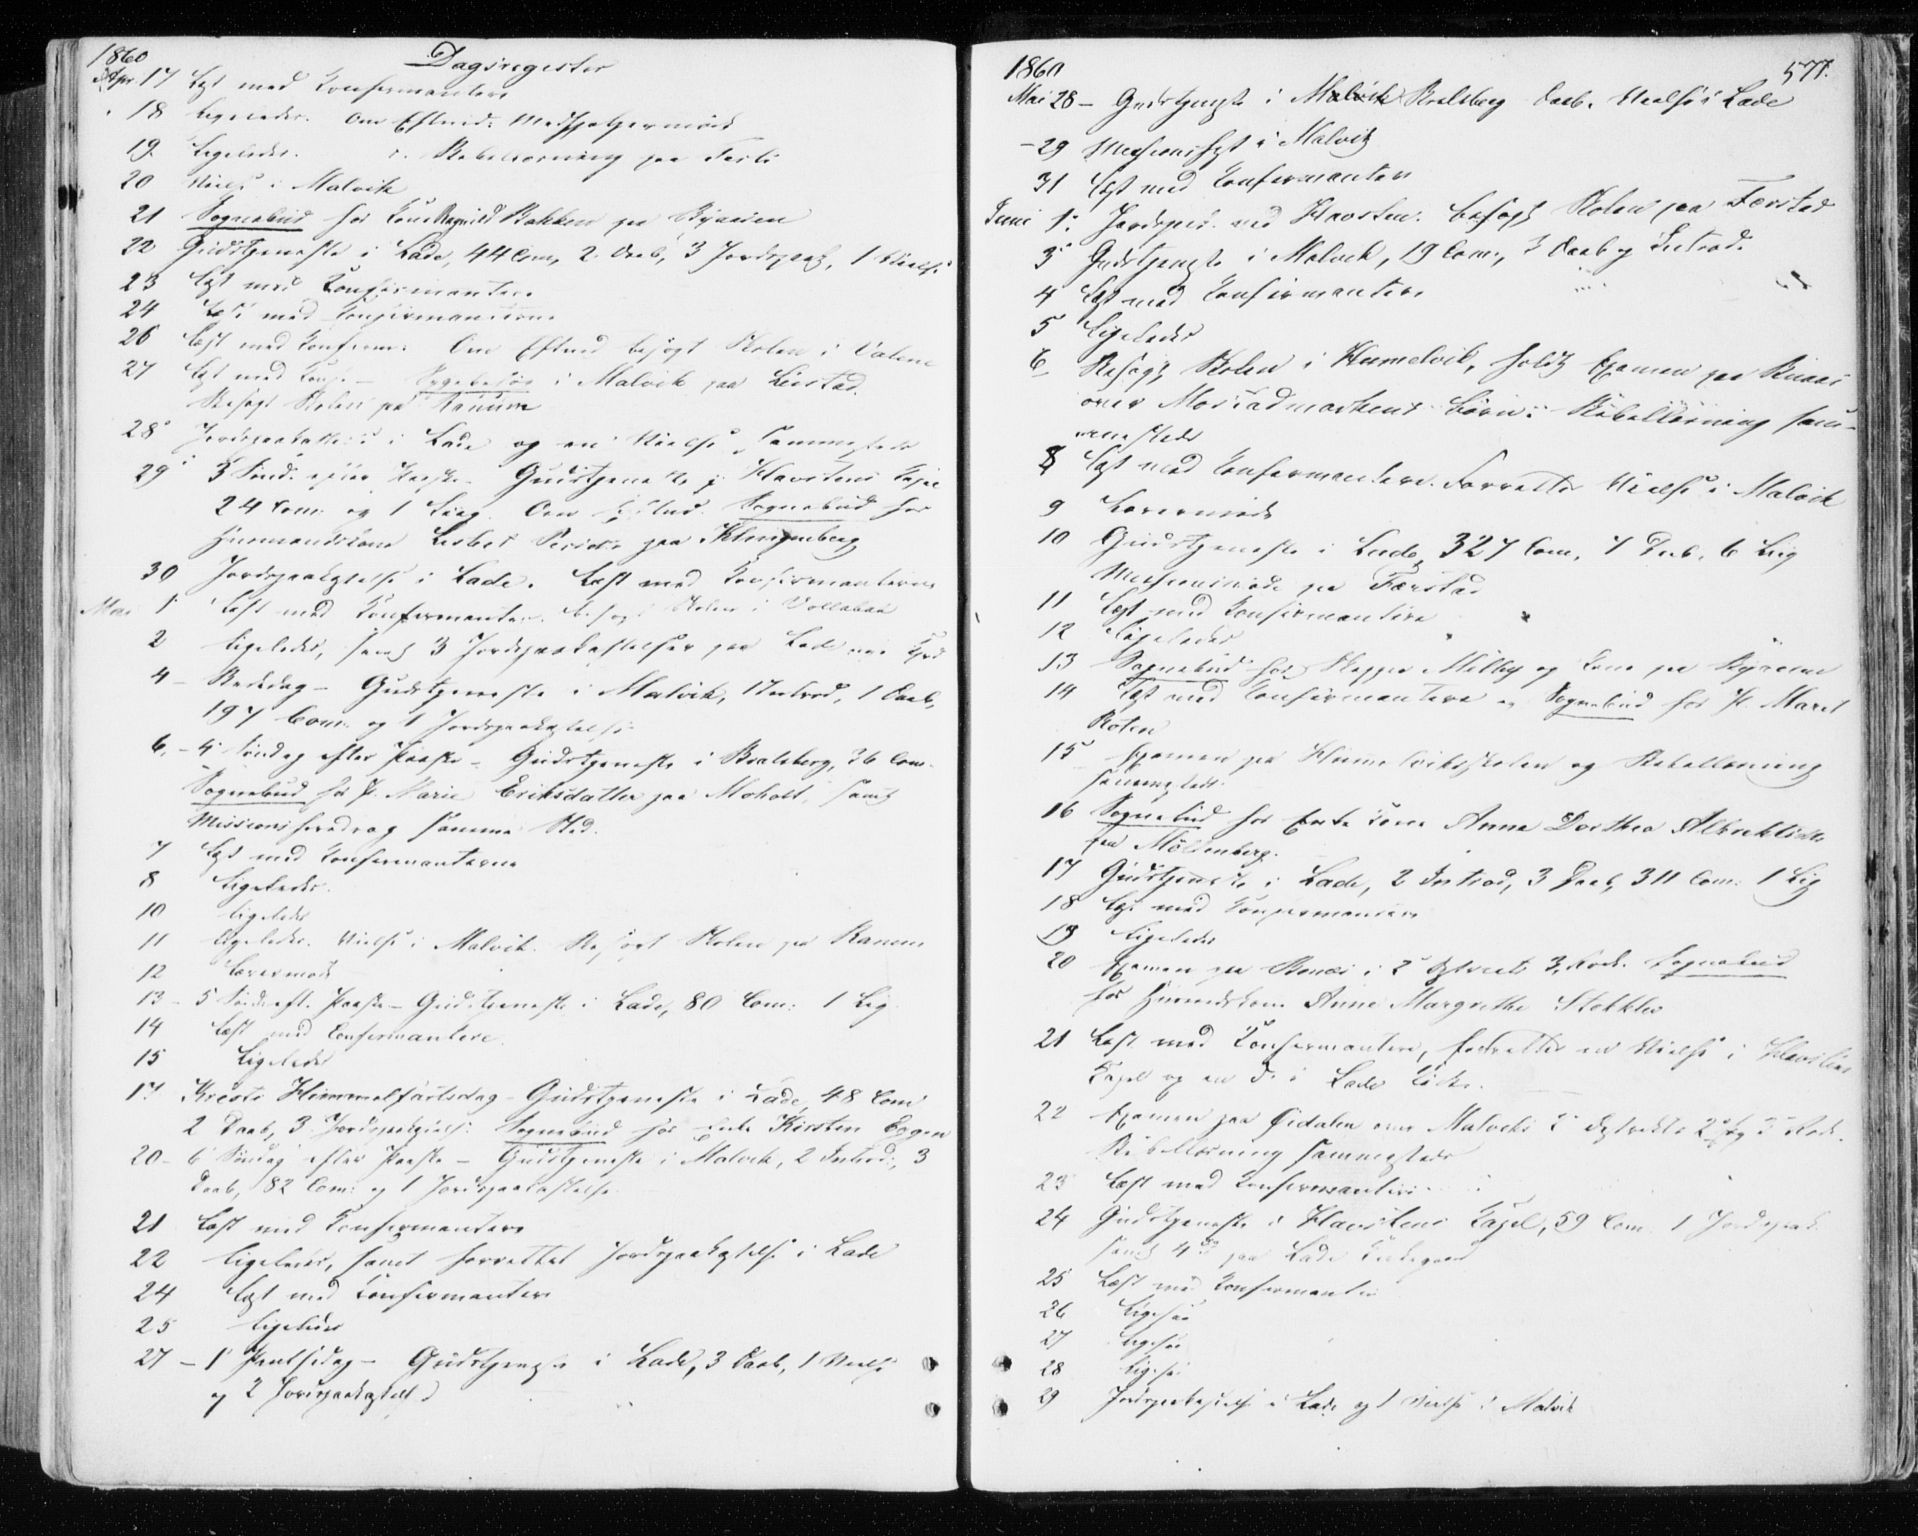 1860 Dagsregister
Apr. 17 Læst med Konfirmanterne
18 Ligeledes. Om Efterm: Medhjelpermøde
19 Ligeledes. Bibellæsning paa
20 Vielse i Malvik
21 Sognebud hos Kone Ragnild Bakken paa Byaasen
22 Gudstjeneste i Lade, 44 Com, 2 Daab, 3 Jordspaak, 1 Vielse
23 Læst med Konfirmanterne
24 Læst med Konfirmanterne
26 Læst med Konfirm: Om Efterm besøgt Skolen i
27 Læst med Konf – Sygebesøg i Malvik paa Leistad.
Besøgt Skolen på Ranum
28 Jordspaakastelse i Lade og en Vielse sammesteds
29 3 Sønd. efter Paaske. Gudstjeneste i Havstens Capel
24 Com: og 1 Liig. Om Efterm. Sognebud hos
Huusmandskone Lisbet paa Klingenberg
30 Jordspaakastelse i Lade. Læst med Konfirmanterne
Mai 1 Læst med Konfirmanter. besøgt Skolen i
2 Ligeledes, samt 3 Jordspaakastelser paa Lade
4 – Bededag – Gudstjeneste i Malvik, 1 Introd, 1 Daab,
197 Com: og 1 Jordspaakastelse
6. – 4 Søndag efter Paaske – Gudstjeneste i Bratsberg, 36 Com.
Sognebud hos P. Marie Eriksdatter paa Moholt, samt
Missionsforedrag samme Sted.
7 Læst med Konfirmanterne
8 Ligeledes.
10 Ligeledes
11 Ligeledes. Vielse i Malvik. Besøgt Skolen på Ranum
12 Læremøde
13 – 5 Sønd: eft. Paaske – Gudstjeneste i Lade, 80 Com: 1 Lig
14 Læst med Confirmantere.
15 Ligeledes
17 Kristi Himmelfartsdag – Gudstjeneste i Lade, 48 Com
2 Daab, 3 Jordspaak: Sognebud hos Enke Kirsten
20 – 6 Søndag efter Paaske – Gudstjeneste i Malvik, 2 Introd:, 3
Daab, 82 Com: og 1 Jordspaakastelse
21 Læst med Konfirmantere
22 Ligeledes, samt forrettet Jordspaakastelse i Lade
24 Læst med Konfirmantere
25 Ligeledes
27 – 1 Pintsedag – Gudstjeneste i Lade, 3 Daab, 1 Vielse
og 2 Jordspaakastelser
1860 577.
Mai 28 – Gudstjeneste i Malvik Bratsberg Daab. Vielse i Lade
– 29 Missionsfest i Malvik
31 Læst med Konfirmanter
Juni 1. Jordspaak. ved Havsten. besøgt Skolen paa Færstad
3 Gudstjeneste i Malvik, 19 Com:, 3 Daab og Introd.
4 Læst med Konfirmantere
5 Ligeledes
6 Besøgt Skolen i Hummelvik, holdt Examen paa
over Mostadmarkens Børn. Bibellæsning sam-
mesteds
8 Læst med Konfirmantere. Forrettet Vielse i Malvik
9 Lærermøde
10 Gudstjeneste i Lade, 327 Com, 7 Daab, 6 Liig
Missionsmøde på Færstad
11 Læst med Konfirmantere
12 Ligeledes
13 Sognebud hos og Kone på Byaasen
14 Læst med Konfirmantere og Sognebud hos P. Maret
15 Examen på Hummelvikskolen og Bibellæsning
sammesteds.
16 Sognebud hos Enke Kone Anna Dorthea
paa Møllenberg.
17 Gudstjeneste i Lade, 2 Introd, 3 Daab, 311 Com: 1 Lig
18 Læst med Konfirmantere
19 Ligeledes
20 Examen paa i 2 Distrikt 3 Rode. Sognebud
hos Huusmandskone Anne Margrethe
21 Læst med Konfirmantere, forrettet en Vielse i Havstens
Kapel og en Do i Lade Kirke.
22 Examen paa over Malviks Distrikt 2 og 3 Rode.
Bibellæsning sammesteds
23 Læst med Konfirmantere
24 Gudstjeneste i Havstens Kapel, 59 Com: 1 Jordspaak
samt 4 paa Lade Kirkegaard
25 Læst med Konfirmanter
26 Ligesaa
27 Ligesaa
28 Ligesaa
29 Jordspaakastelse i Lade og 1 Vielse i Malvik